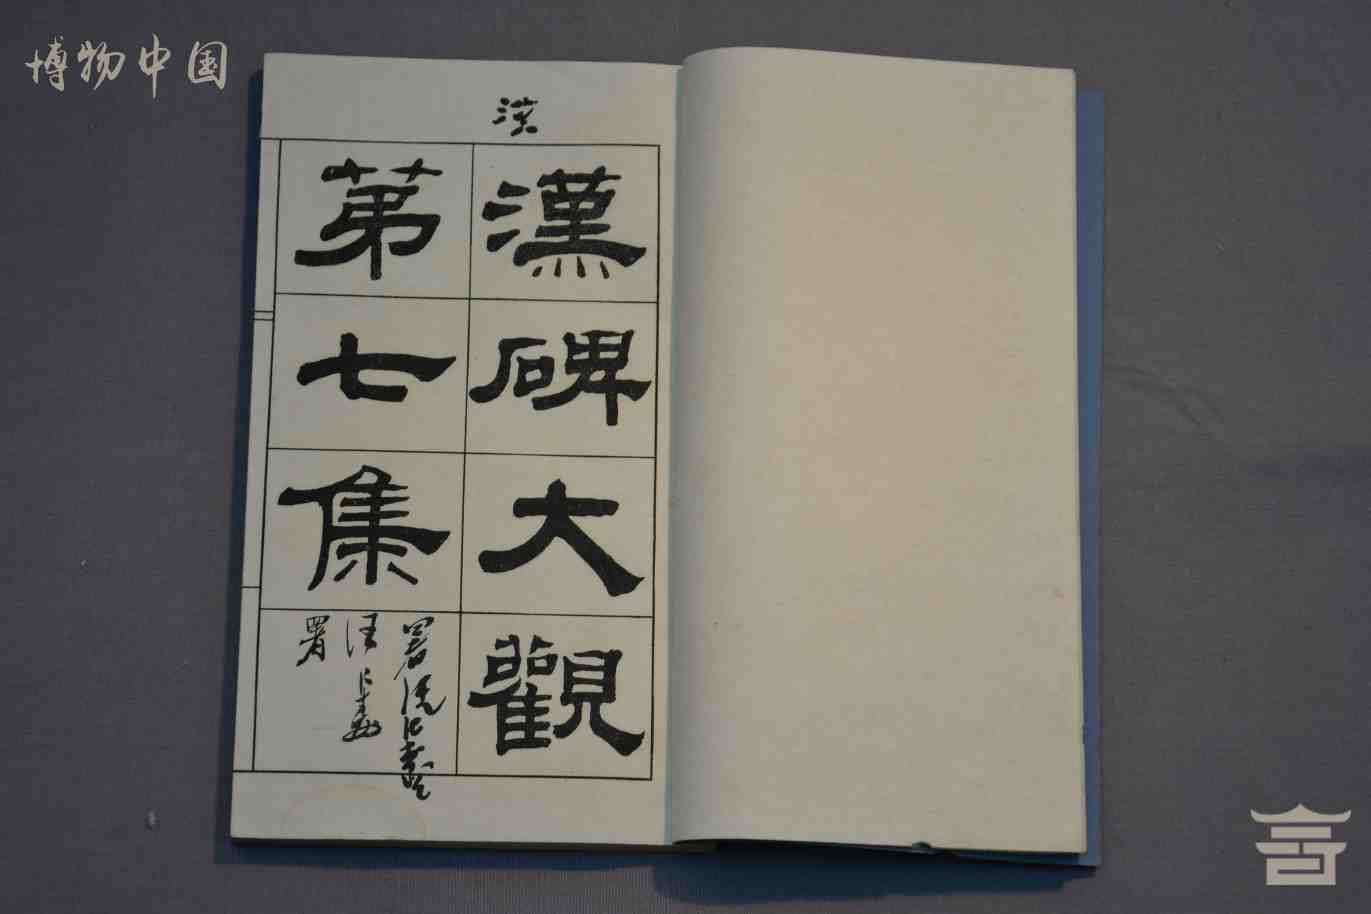 博物中国
漢
漢碑大觀
第七集
署